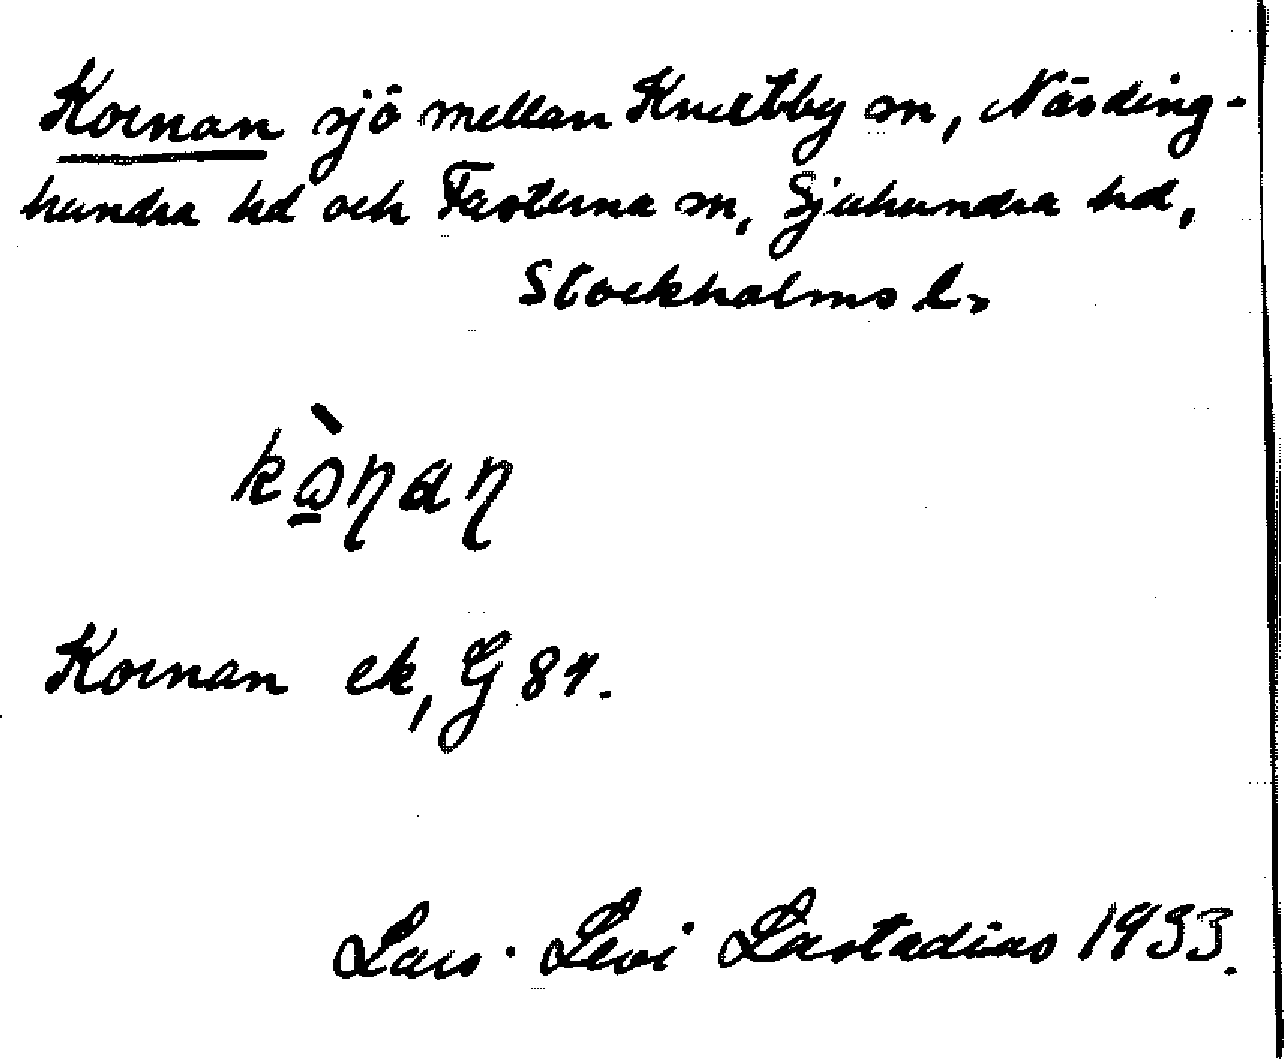 Kornan sjö mellan Knutby sn, Närding-
hundra hd och Fasterna sn, Sjuhundra hd,
Stockholms l.
kò̱ṇaṇ
Kornan ek, G 87.
Lars. Levi Læstadius 1933.